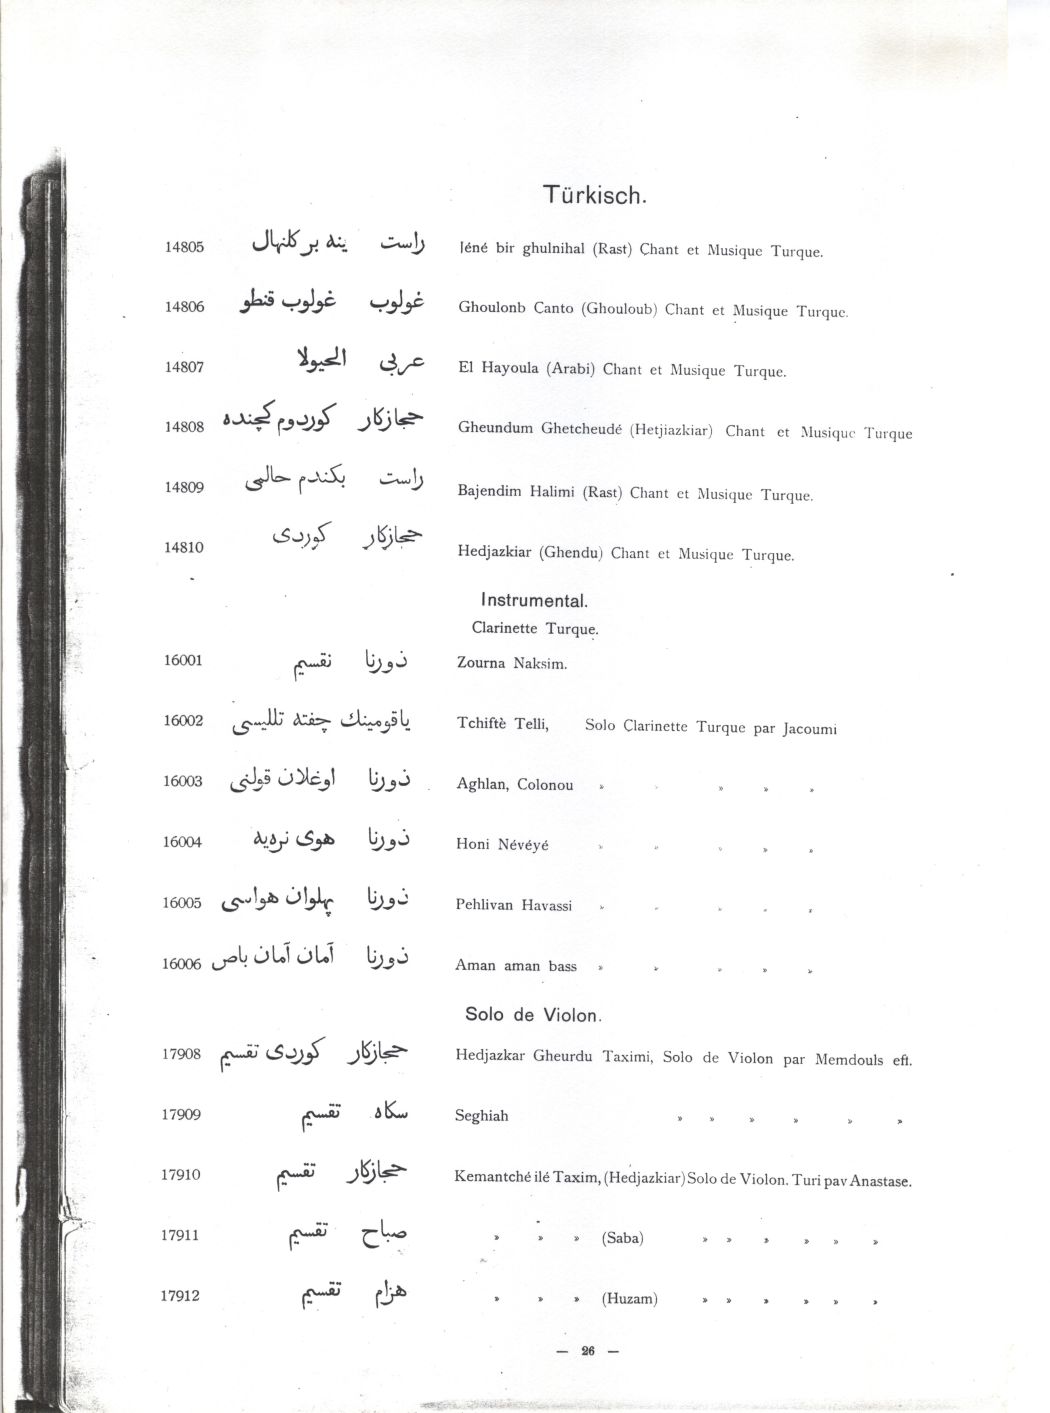 Türkisch.
14805 راست ينه بر كلنهال Iéné bir ghulnihal (Rast) Chant et Musique Turque.
14806 غولوب غولوب قنطو Ghoulonb Canto (Ghouloub) Chant et Musique Turque.
14807 عربى الحيولا El Hayoula (Arabi) Chant et Musique Turque.
14808 حجازكار كوردوم كچنده Gheundum Ghetcheudé (Hetjiazkiar) Chant et Musique Turque
14809 راست بكندم حالمى Bajendim Halimi (Rast) Chant et Musique Turque.
14810 حجازكار كوردى Hedjazkiar (Ghendu) Chant et Musique Turque.
Instrumental.
Clarinette Turque.
16001 ذورنا نقسيم Zourna Naksim.
16002 ياقومينك چفته تلليسى Tchiftè Telli, Solo Clarinette Turque par Jacoumi
16003 ذورنا اوغلان قولنى Aghlan, Colonou » » » » »
16004 ذورنا هوى نره‌يه Honi Névéyé » » » » »
16005 ذورنا پهلوان هواسى Pehlivan Havassi » » » » »
16006 ذورنا آمان آمان باص Aman aman bass » » » » »
Solo de Violon.
17908 حجازكار كوردى تقسيم Hedjazkar Gheurdu Taximi, Solo de Violon par Memdouls eft.
17909 سكاه تقسيم Seghiah » » » » » »
17910 حجازكار تقسيم Kemantché ilé Taxim, (Hedjazkiar) Solo de Violon. Turi pav Anastase.
17911 صباح تقسيم » » » (Saba) » » » » » »
17912 هزام تقسيم » » » (Huzam) » » » » » »
— 26 —